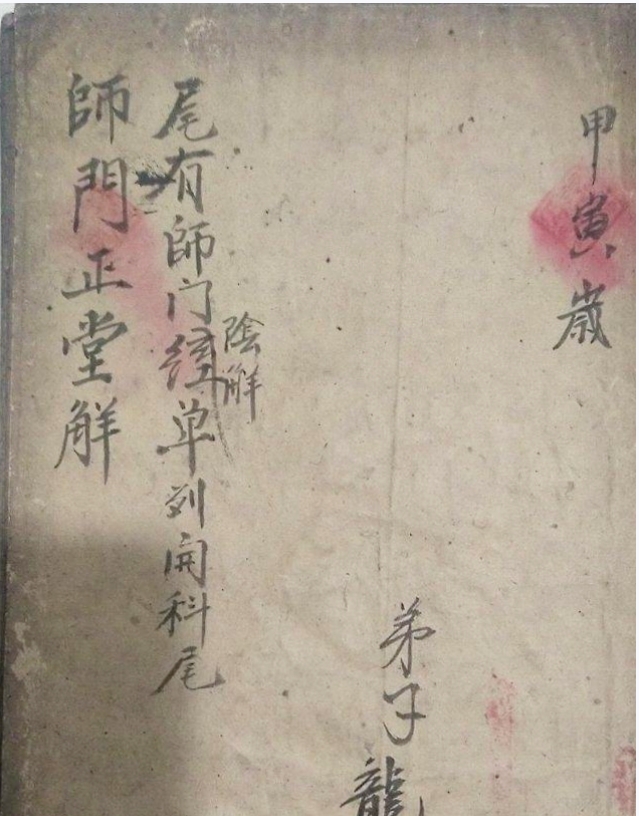 甲寅歲
弟子龍
陰觧
尾有師门經单列開科尾
師門正堂觧